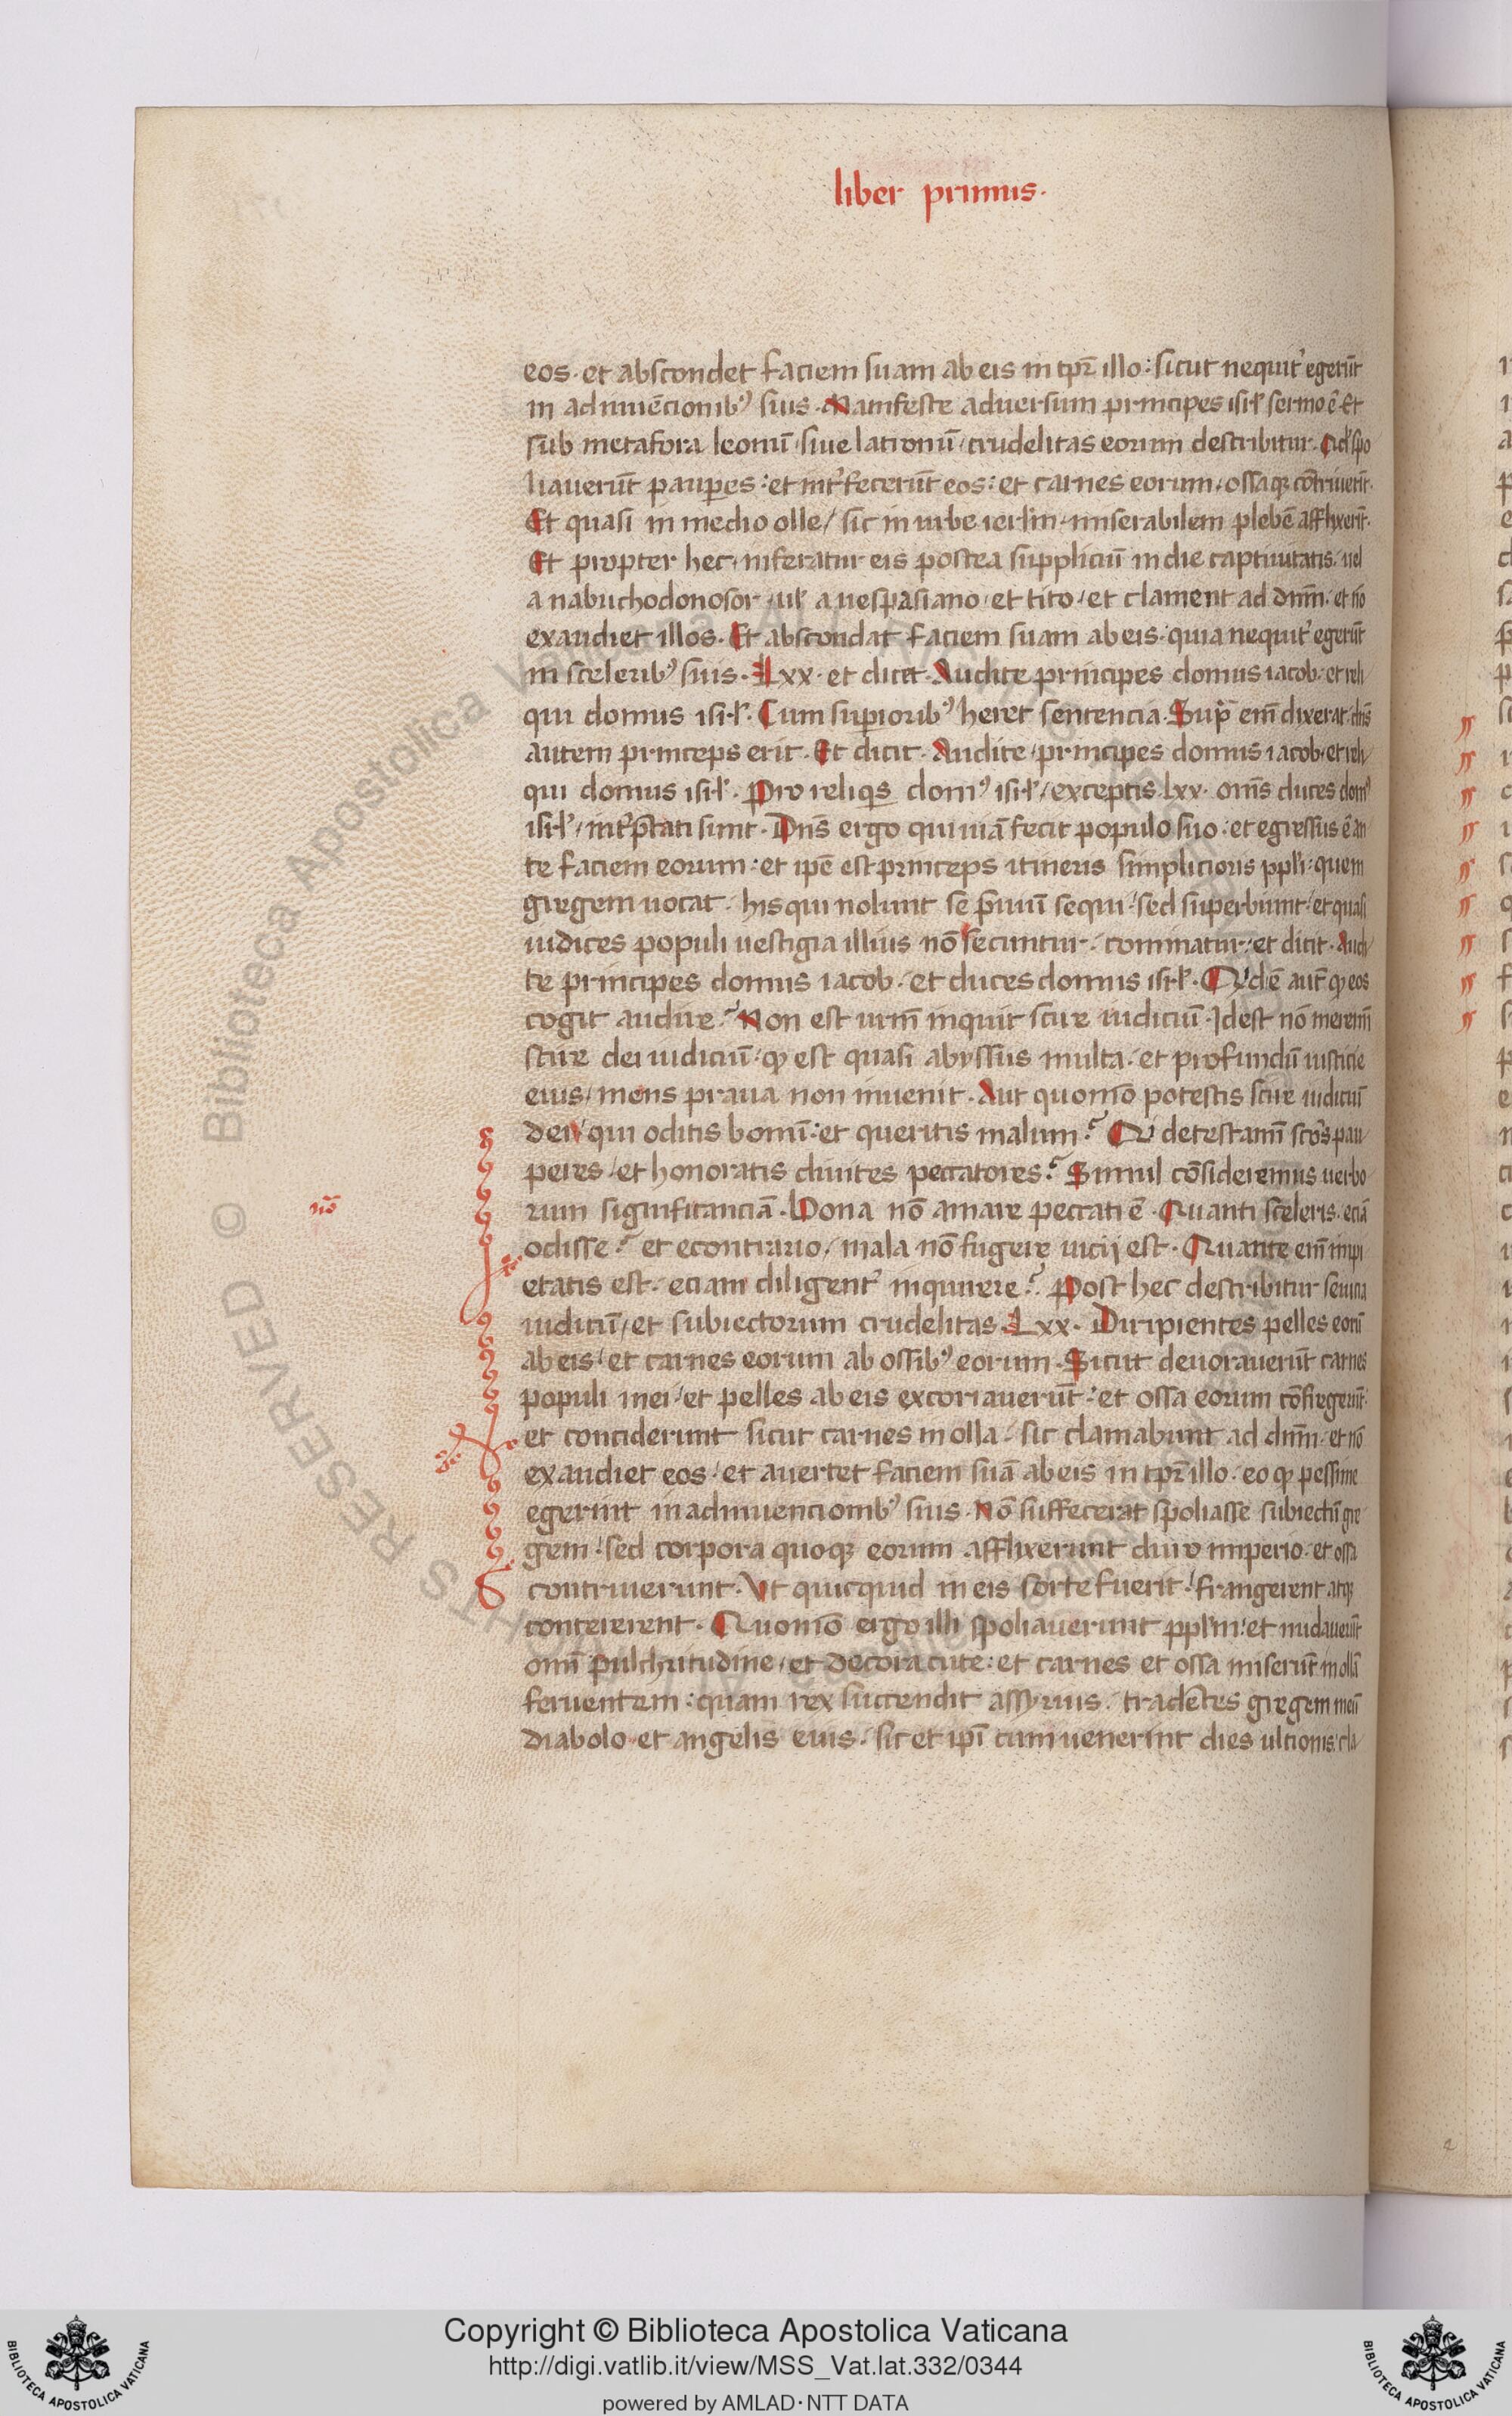 liber primus·
eos· et abscondet faciem suam ab eis in tp̄r illo: sicut nequit͛ egerūt
in adinuēcionibꝰ suis· Manifeste adversum principes isrl̓ sermo ē· Et
sub metafora leonū / siue latronū / crudelitas eorum describitur·
liauerūt pauꝑes: et int͛fecerūt eos: et carnes eorum / ossaqꝫ cōtriuerūt·
Et quasi in medio olle / sic in urbe ierl̄m / miserabilem plebē afflixerūt·
Et propter hec / inferatur eis postea suppliciū in die captiuitatis / uel
a nabuchodonosor / ul̓ a uespasiano / et tito / et clament ad dn̄m· et nō
exaudiet illos· Et abscondat faciem suam ab eis: quia nequit͛ egerūt
in sceleribꝰ suis· Lxx· et dicit· Audite principes domus iacob· et reli
qui domus isrl̓· Cum suꝑioribꝰ heret sentencia· Sup̄ em̄ dixerat· dn̄s
autem princeps erit· Et dicit· Audite / principes domus iacob· et reli/
qui domus isrl̓· Pro reliqis domꝰ isrl̓ / exceptis lxx· om̄s duces domꝰ
isrl̓ / int͛p̄tati sunt· Dn̄s ergo qui uiā fecit populo suo: et egressus ē an
te faciem eorum: et ipē est princeps itineris simplicioris ppl̓i: quem
gregem uocat· his qui nolunt se p̄uiū sequi / sed superbiunt / et quasi
iudices populi uestigia illius nō secuntur / cominatur / et dicit· Audi/
te principes domus iacob / et duces domus isrl̓· Qͥdē aut̄ qꝫ eos
cogit audire? Non est ur̄m inquit scire iudiciū· Idest nō merem̄
scire dei iudiciū / qꝫ est quasi abyssus multa / et profundū iusticie
eius / mens praua non inuenit· Aut quomō potestis scire iudiciū
dei / qui oditis bonū: et queritis malum? Qͥ detestam̄ scōs pau/
peres / et honoratis diuites peccatores? Simul cōsideremus uerbo
nō
rum significanciā· Bona nō amare peccati ē· Quanti sceleris / eciā
odisse? et econtrario / mala nō fugere uicij est· Quante em̄ impi
etatis est / eciam diligent͛ inquirere? Post hec describitur seuicia
iudiciū / et subiectorum crudelitas· Lxx· Diripientes pelles eorū
ab eis / et carnes eorum ab ossibꝰ eorum· Sicut deuorauerūt carnes
populi mei / et pelles ab eis excoriauerūt: et ossa eorum cōfregerūt·
et conciderunt sicut carnes in olla / sic clamabunt ad dn̄m· et nō
exaudiet eos / et avertet faciem suā ab eis in tp̄r illo / eo qꝫ pessime
egerint in adinuencionibꝰ suis· Nō suffecerat spoliasse subiectū gre
gem / sed corpora quoqꝫ eorum afflixerunt duro imperio / et ossa
contriuerunt· Vt quicquid in eis forte fuerit / frangerent atqꝫ
contererent· Quomō ergo illi spoliauerunt ppl̓m: et nudauerūt
omī pulchritudine / et decora cute: et carnes et ossa miserūt in ollā
feruentem: quam rex succendit assyrius / tradētes gregem meū
diabolo et angelis eius / sic et ipī cum uenerint dies ultionis / cla/
Copyright © Biblioteca Apostolica Vaticana
http://digi.vatlib.it/view/MSS_Vat.lat.332/0344
powered by AMLAD·NTT DATA
BIBLIOTECA APOSTOLICA VATICANA
BIBLIOTECA APOSTOLICA VATICANA